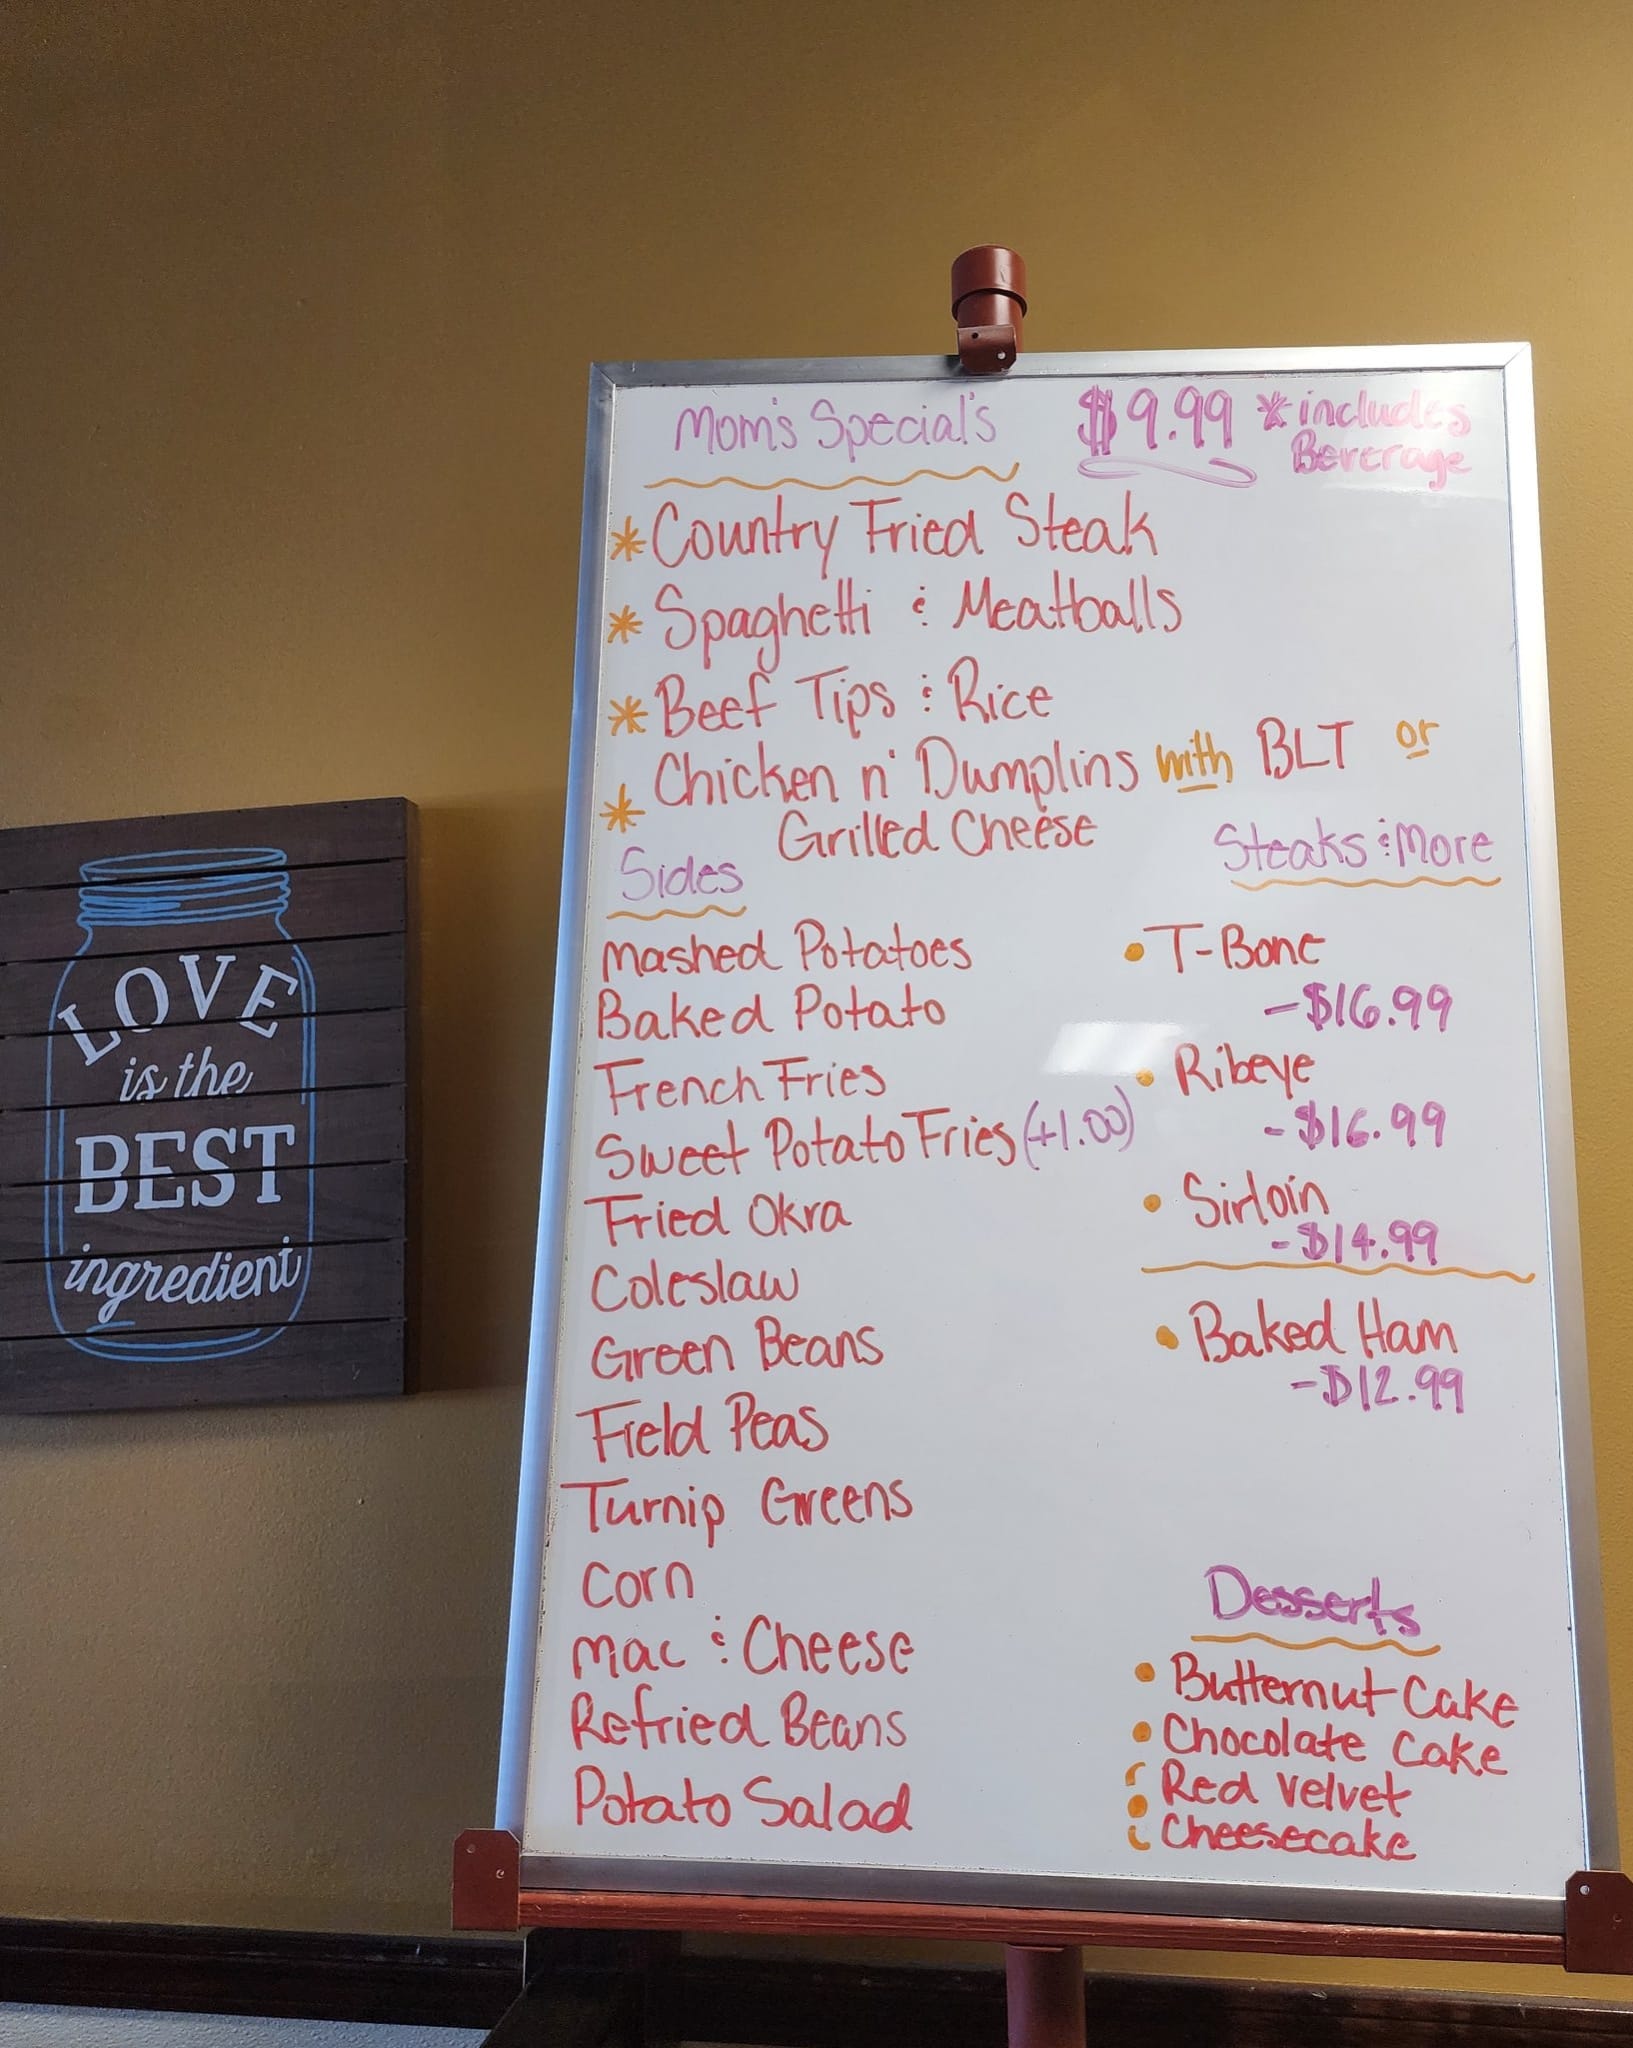 Mom's Special's $9.99 *includes
Beverage
* Country Fried Steak
* Spaghetti & Meatballs
* Beef Tips & Rice
* Chicken n' Dumplins with BLT or
Grilled Cheese
Sides
Mashed Potatoes
Baked Potato
French Fries
Sweet Potato Fries (+1.00)
Fried Okra
Coleslaw
Green Beans
Field Peas
Turnip Greens
Corn
Mac & Cheese
Refried Beans
Potato Salad
Steaks & More
• T-Bone
-$16.99
• Ribeye
-$16.99
• Sirloin
-$14.99
• Baked Ham
-$12.99
Desserts
• Butternut Cake
• Chocolate Cake
• Red Velvet
Cheesecake
LOVE
is the
BEST
ingredient